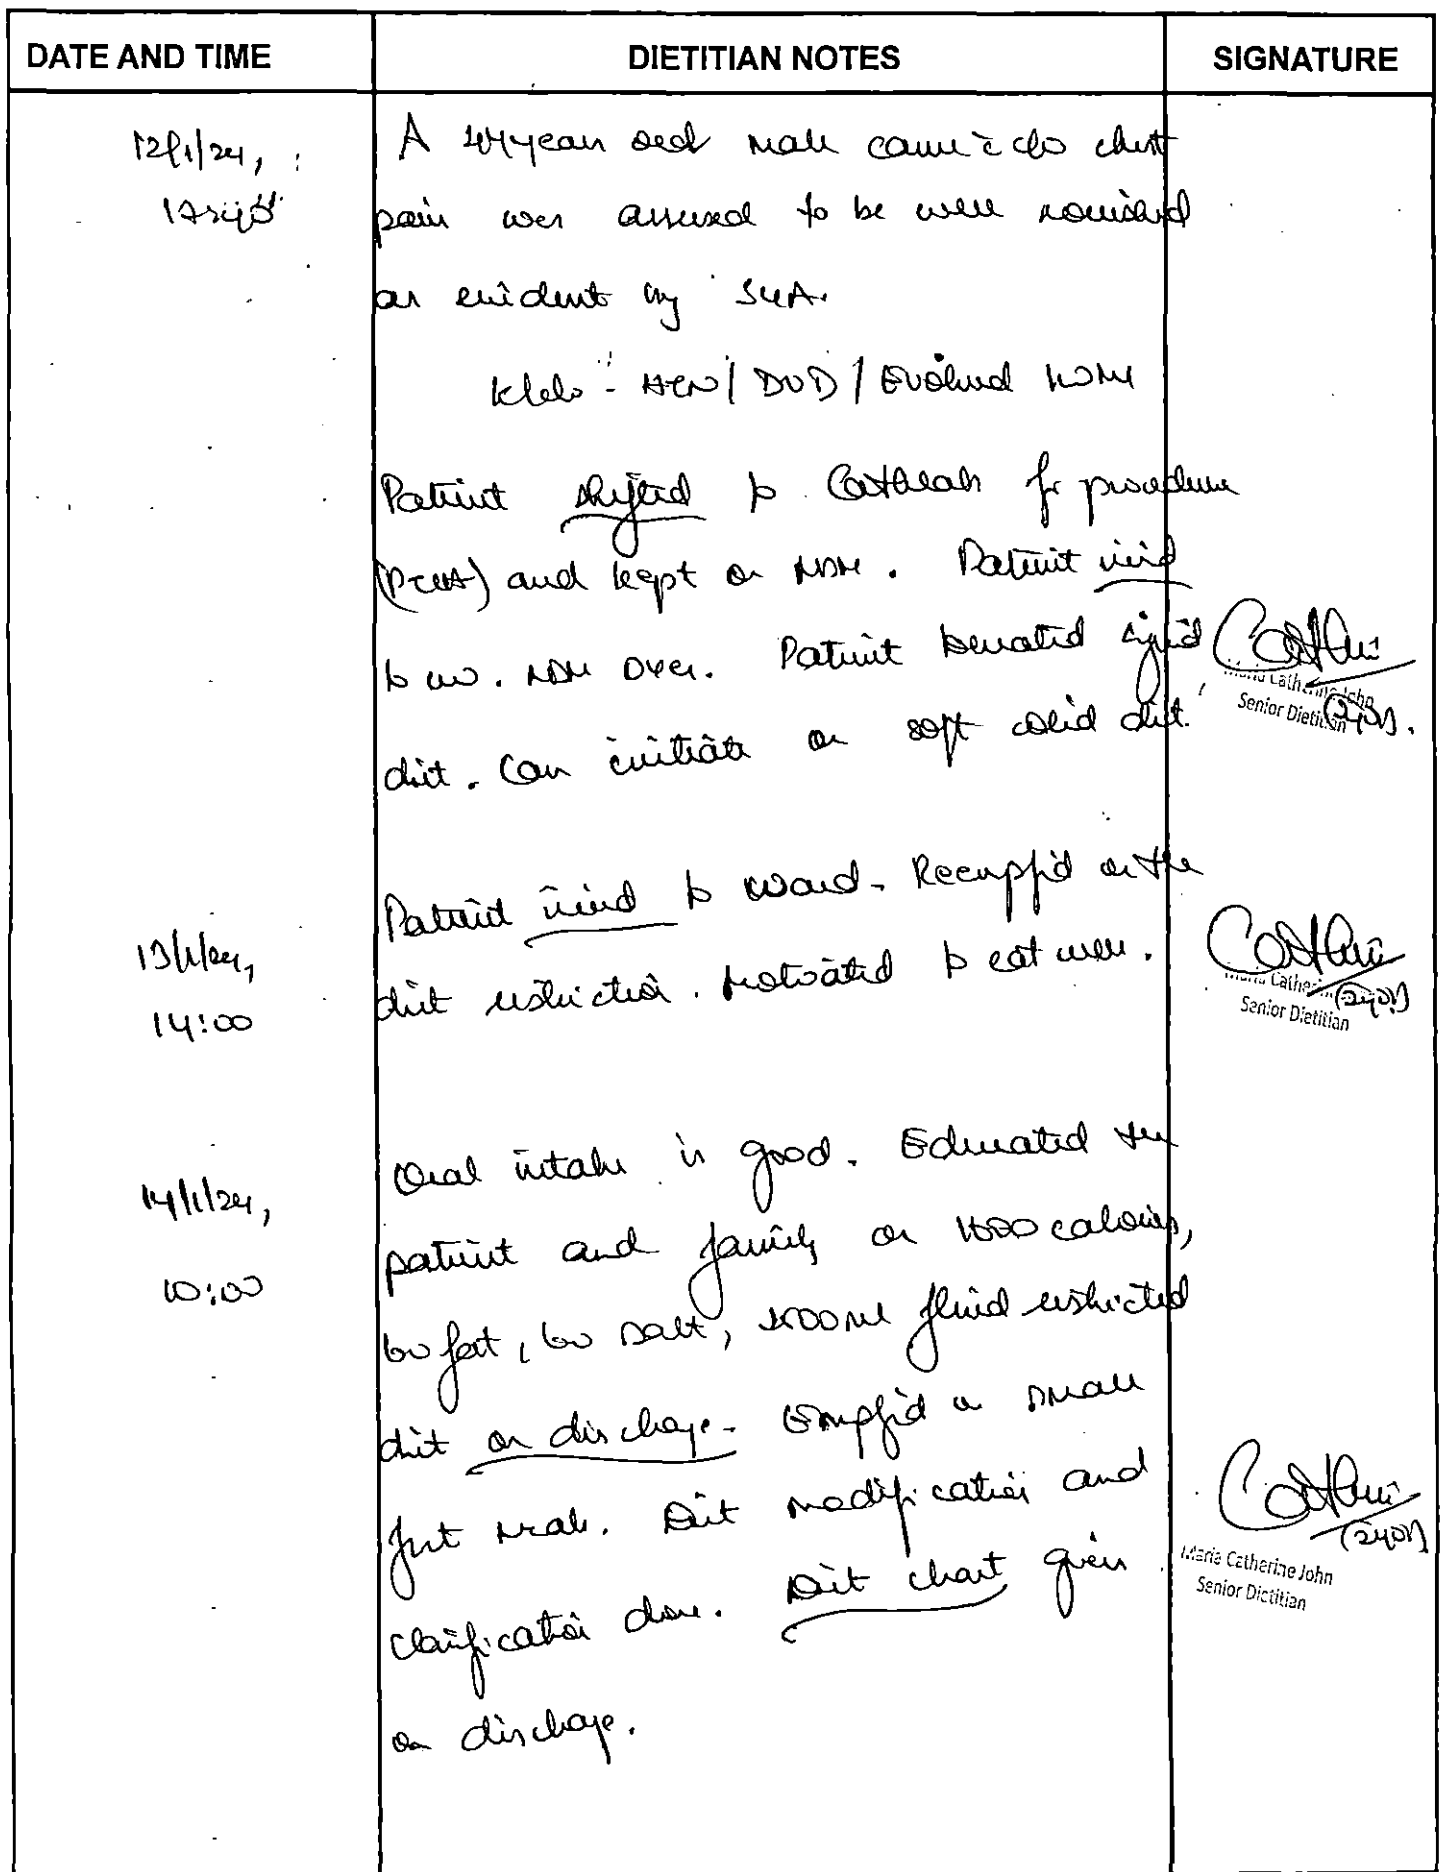 DATE AND TIME DIETITIAN NOTES SIGNATURE
12/1/24, A 44 year old male came c̄ c/o chest
pain was assessed to be well nourished
as evident by SGA.
K/c/o - HTN / DVD / Evolved
Patient shifted to Cathlab for procedure
(PTCA) and kept on NBM. Patient
to . NBM over. Patient tolerated liquid
diet. Can initiate on soft solid diet.
Maria Catherine John
Senior Dietitian
13/1/24, Patient to ward. on the
14:00 diet restriction. Motivated to eat well.
Maria Catherine
Senior Dietitian
14/1/24, Oral intake is good. Educated the
10:00 patient and family on calories,
low fat, low salt, fluid restricted
diet on discharge. a small
meals. Diet modification and
clarification done. Diet chart given
on discharge.
Maria Catherine John
Senior Dietitian